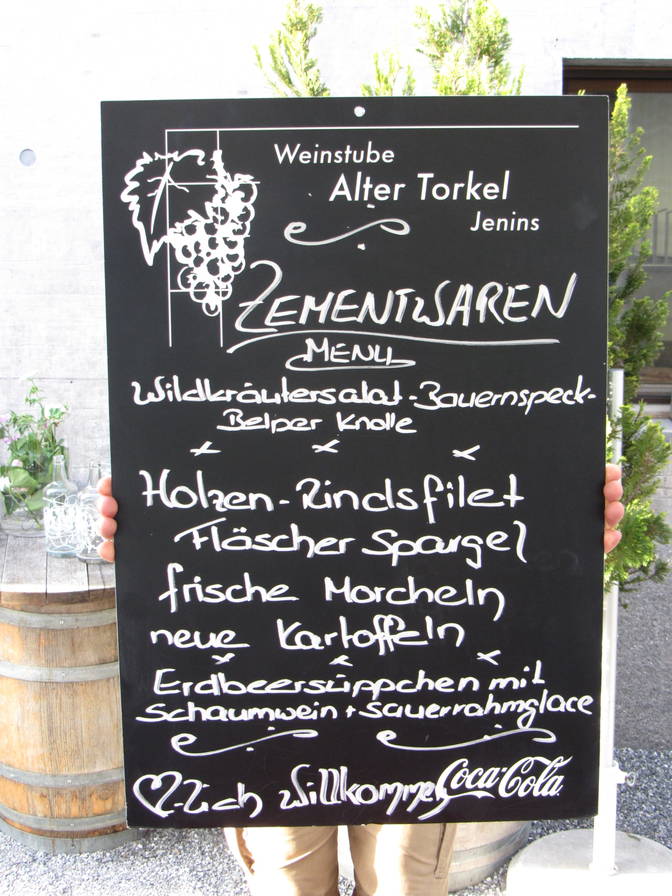 Weinstube
Alter Torkel
Jenins
ZEMENTWAREN
MENU
Wildkräutersalat-Bauernspeck-
Belper Knolle
Holzen-Rindsfilet
Fläscher Spargel
frische Morcheln
neue Kartoffeln
Erdbeersüppchen mit
Schaumwein + Sauerrahmglace
♡-lich willkommen
Coca-Cola